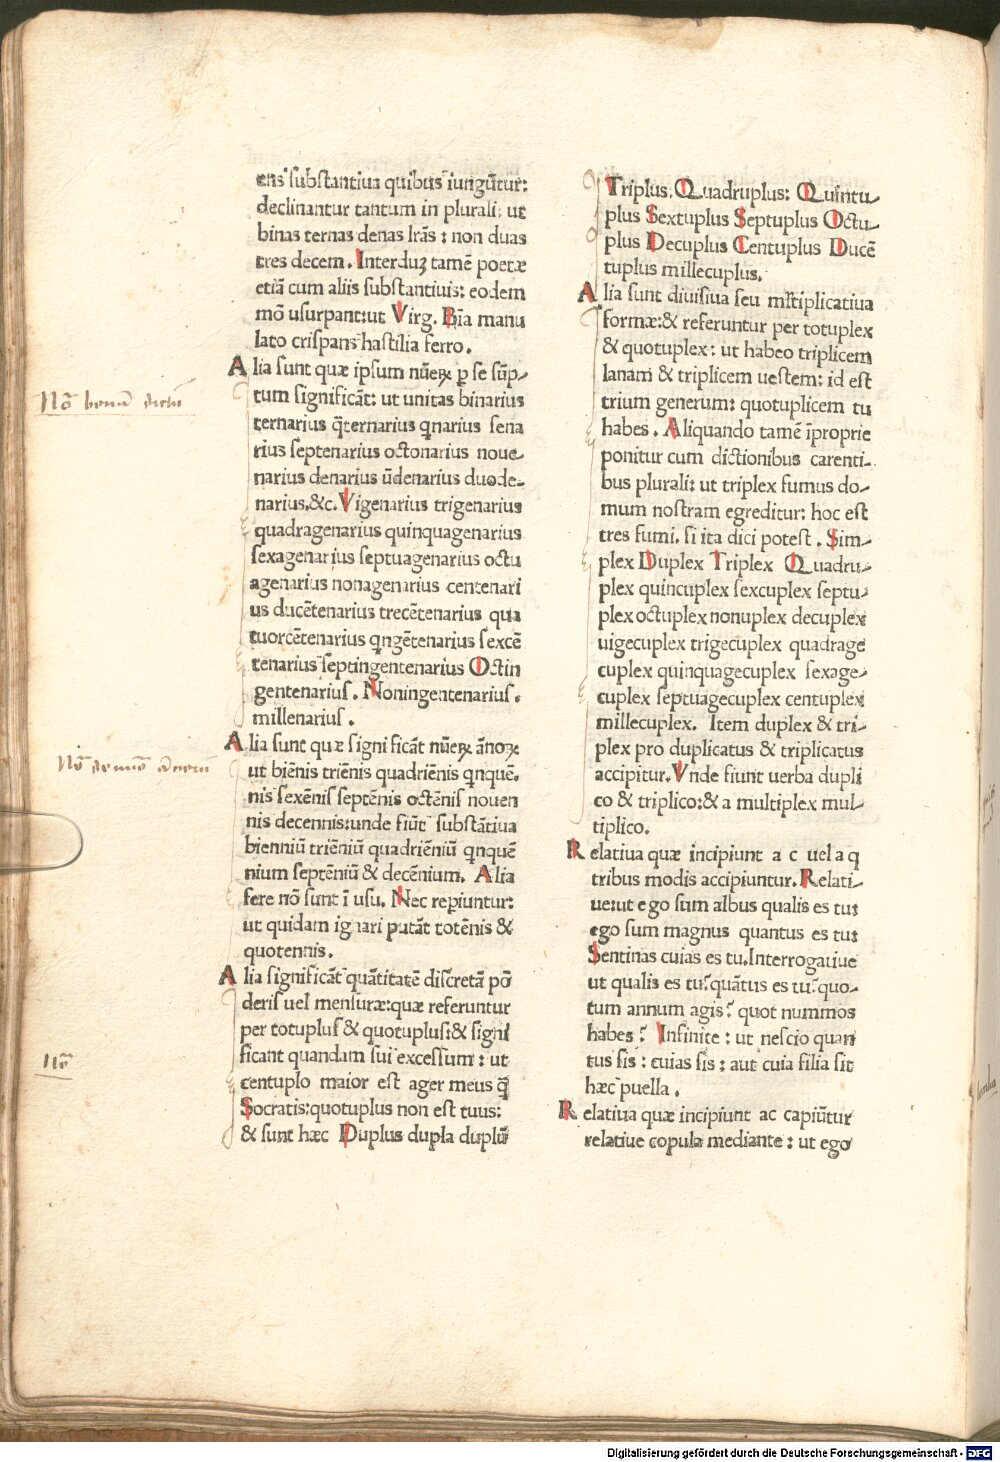 ens substantiua quibus iungũtur:
declinantur tantum in plurali: ut
binas ternas denas lr̃as : non duas
tres decem. Interduꝫ tamẽ poetæ
etiã cum aliis substantiuis: eodem
mõ usurpant:ut Virg. Bĩa manu
lato crispans hastilia ferro.
Alia sunt quæ ipsum nũeꝝ ꝑ se sũp-
tum significãt: ut unitas binarius
ternarius q̃ternarius qnarius sena
rius septenarius octonarius noue-
narius denarius ũdenarius duode-
narius.&c. Vigenarius trigenarius
quadragenarius quinquagenarius
sexagenarius septuagenarius octu
agenarius nonagenarius centenari
us ducẽtenarius trecẽtenarius qua
tuorcẽtenarius qngẽtenarius sexcẽ
tenarius septingentenarius Octin
gentenarius. Noningentenarius.
millenarius.
Alia sunt quæ significãt nũeꝝ ãnoꝝ
ut biẽnis triẽnis quadriẽnis qnquẽ-
nis sexẽnis septẽnis octẽnis nouen
nis decennis:unde fiũt substãtiua
bienniũ triẽniũ quadriẽniũ qnquẽ
nium septẽniũ & decẽnium. Alia
fere nõ sunt ĩ usu. Nec repiuntur:
ut quidam ignari putãt totẽnis &
quotennis.
Alia significãt quãtitatẽ discretã põ
deris uel mensuræ:quæ referuntur
per totuplus & quotuplus:& signi
ficant quandam sui excessum : ut
centuplo maior est ager meus q̃
Socratis:quotuplus non est tuus:
& sunt hæc Duplus dupla duplũ
Triplus. Quadruplus: Quintu-
plus Sextuplus Septuplus Octu-
plus Decuplus Centuplus Ducẽ
tuplus millecuplus.
Alia sunt diuisiua seu ml̃tiplicatiua
formæ:& referuntur per totuplex
& quotuplex: ut habeo triplicem
lanam & triplicem uestem: id est
trium generum: quotuplicem tu
habes. Aliquando tamẽ ĩproprie
ponitur cum dictionibus carenti-
bus plurali: ut triplex fumus do-
mum nostram egreditur: hoc est
tres fumi. si ita dici potest. Sim-
plex Duplex Triplex Quadru-
plex quincuplex sexcuplex septu-
plex octuplex nonuplex decuplex
uigecuplex trigecuplex quadrage
cuplex quinquagecuplex sexage-
cuplex septuagecuplex centuplex
millecuplex. Item duplex & tri-
plex pro duplicatus & triplicatus
accipitur. Vnde fiunt uerba dupli
co & triplico:& a multiplex mul-
tiplico.
Relatiua quæ incipiunt a c uel a q
tribus modis accipiuntur. Relati-
ue:ut ego sum albus qualis es tu:
ego sum magnus quantus es tu:
Sentinas cuias es tu. Interrogatiue
ut qualis es tu? quãtus es tu? quo-
tum annum agis? quot nummos
habes? Infinite : ut nescio quan
tus sis : cuias sis : aut cuia filia sit
hæc puella.
Relatiua quæ incipiunt ac capiũtur
relatiue copula mediante : ut ego
Digitalisierung gefördert durch die Deutsche Forschungsgemeinschaft - DFG